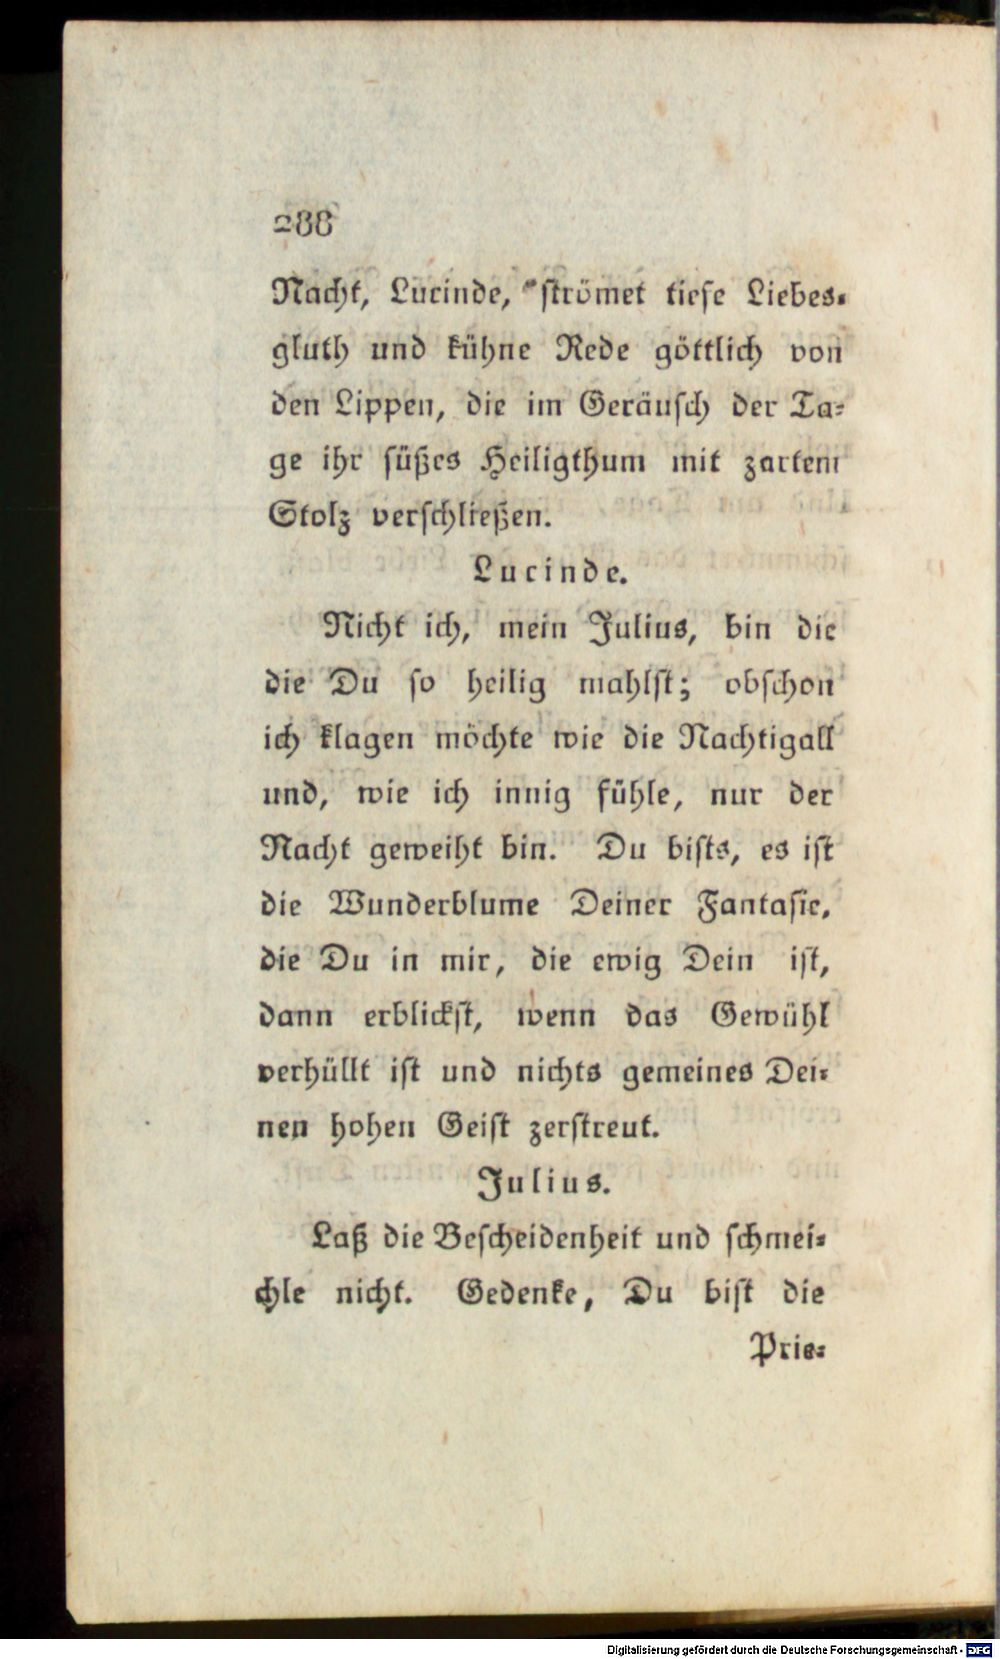 288
Nacht, Lucinde, strömet tiefe Liebes-
gluth und kühne Rede göttlich von
den Lippen, die im Geräusch der Ta-
ge ihr süßes Heiligthum mit zartem
Stolz verschließen.
Lucinde.
Nicht ich, mein Julius, bin die
die Du so heilig mahlst; obschon
ich klagen möchte wie die Nachtigall
und, wie ich innig fühle, nur der
Nacht geweiht bin. Du bists, es ist
die Wunderblume Deiner Fantasie,
die Du in mir, die ewig Dein ist,
dann erblickst, wenn das Gewühl
verhüllt ist und nichts gemeines Dei-
nen hohen Geist zerstreut.
Julius.
Laß die Bescheidenheit und schmei-
chle nicht. Gedenke, Du bist die
Prie-
Digitalisierung gefördert durch die Deutsche Forschungsgemeinschaft - DFG